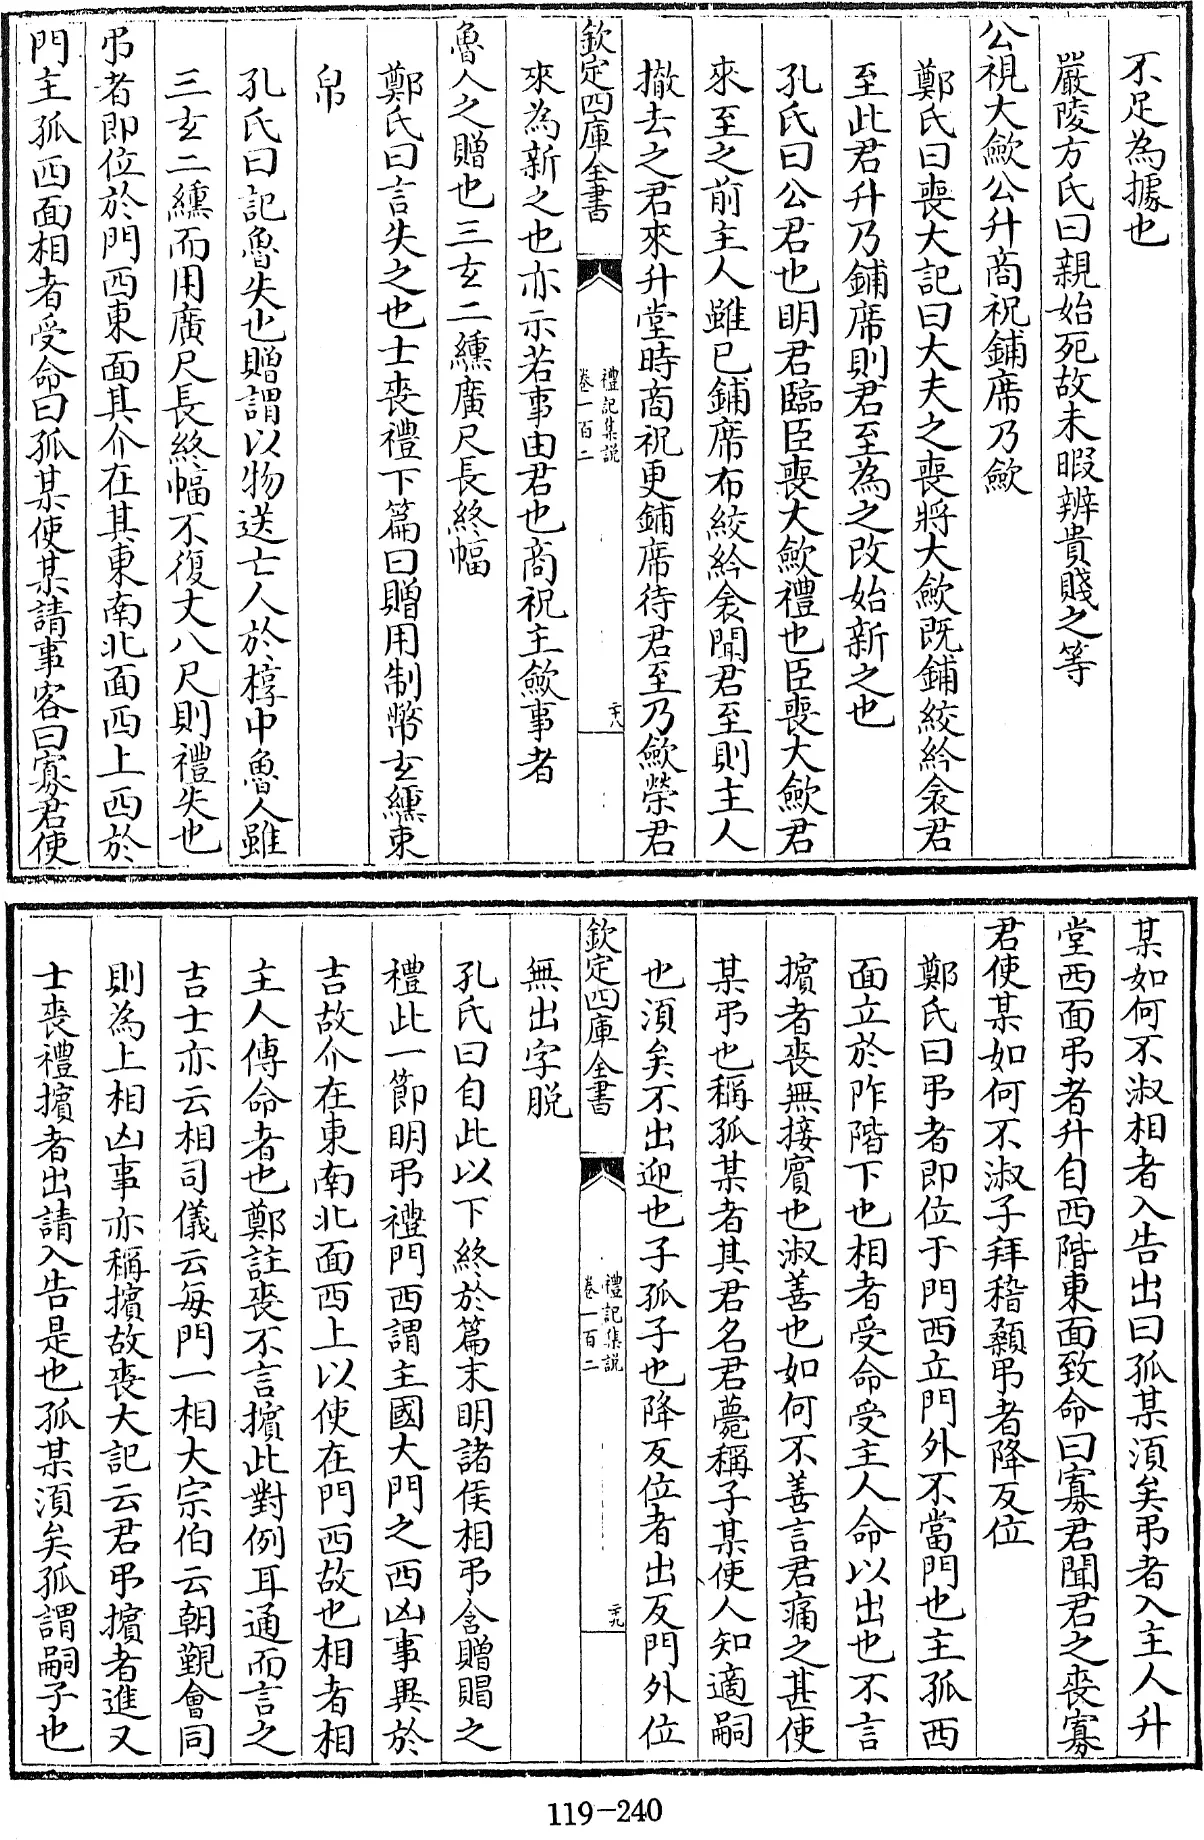 不足為據也
嚴陵方氏曰親始死故未暇辨貴賤之等
公視大歛公升商祝鋪席乃歛
鄭氏曰喪大記曰大夫之喪將大歛既鋪絞紟衾君
至此君升乃鋪席則君至為之改始新之也
孔氏曰公君也明君臨臣喪大歛禮也臣喪大歛君
來至之前主人雖已鋪席布絞紟衾聞君至則主人
撤去之君來升堂時商祝更鋪席待君至乃歛榮君
欽定四庫全書
禮記集説
卷一百二
二十八
來為新之也亦示若事由君也商祝主歛事者
魯人之贈也三玄二纁廣尺長終幅
鄭氏曰言失之也士喪禮下篇曰贈用制幣玄纁束
帛
孔氏曰記魯失也贈謂以物送亡人於椁中魯人雖
三玄二纁而用廣尺長終幅不復丈八尺則禮失也
弔者即位於門西東面其介在其東南北面西上西於
門主孤西面相者受命曰孤某使某請事客曰寡君使
某如何不淑相者入告出曰孤某須矣弔者入主人升
堂西面弔者升自西階東面致命曰寡君聞君之喪寡
君使某如何不淑子拜稽顙弔者降反位
鄭氏曰弔者即位于門西立門外不當門也主孤西
面立於阼階下也相者受命受主人命以出也不言
擯者喪無接賓也淑善也如何不善言君痛之甚使
某弔也稱孤某者其君名君薨稱子某使人知適嗣
也須矣不出迎也子孤子也降反位者出反門外位
欽定四庫全書
禮記集説
卷一百二
二十九
無出字脱
孔氏曰自此以下終於篇末明諸侯相弔含贈賵之
禮此一節明弔禮門西謂主國大門之西凶事異於
吉故介在東南北面西上以使在門西故也相者相
主人傳命者也鄭註喪不言擯此對例耳通而言之
吉士亦云相司儀云每門一相大宗伯云朝覲會同
則為上相凶事亦稱擯故喪大記云君弔擯者進又
士喪禮擯者出請入告是也孤某須矣孤謂嗣子也
119-240